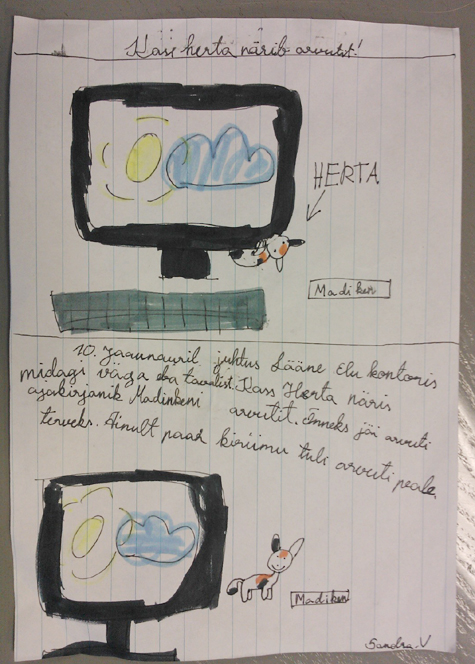 Kass herta närib arvutit!
HERTA
Madiken
10. jaaunauril juhtus Lääne Elu kontoris
midagi väga eba tavalist. Kass Herta näris
ajakirjanik Madinkeni arvutit. Õnneks jäi arvuti
terveks. Ainult paar kriimu tuli arvuti peale.
Madiken
Sandra.V